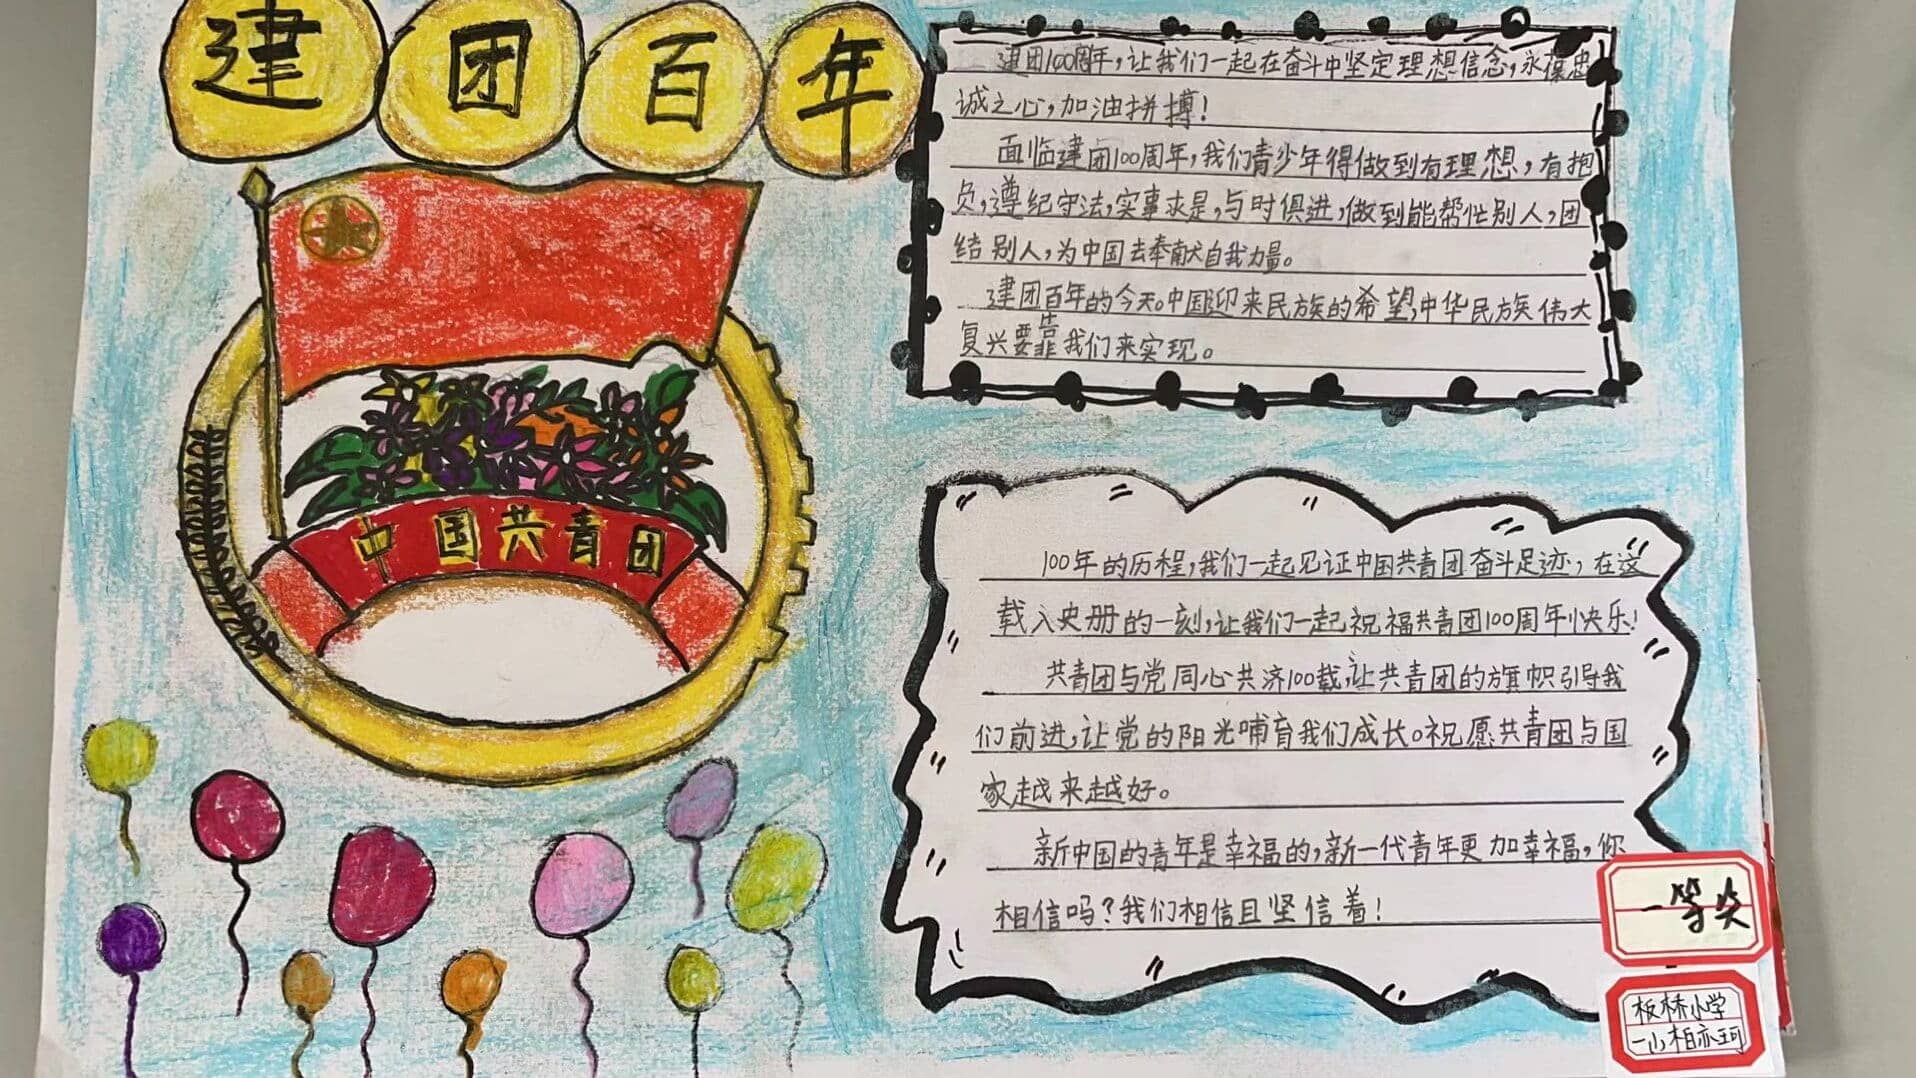 建团百年
中国共青团
建团100周年,让我们一起在奋斗中坚定理想信念,永葆忠
诚之心,加油拼搏!
面临建团100周年,我们青少年得做到有理想,有抱
负,遵纪守法,实事求是,与时俱进,做到能帮忙别人,团
结别人,为中国去奉献自我力量。
建团百年的今天。中国迎来民族的希望,中华民族伟大
复兴要靠我们来实现。
100年的历程,我们一起见证中国共青团奋斗足迹,在这
载入史册的一刻,让我们一起祝福共青团100周年快乐!
共青团与党同心共济100载,让共青团的旗帜引导我
们前进,让党的阳光哺育我们成长。祝愿共青团与国
家越来越好。
新中国的青年是幸福的,新一代青年更加幸福,你
相信吗?我们相信且坚信着!
一等奖
板桥小学